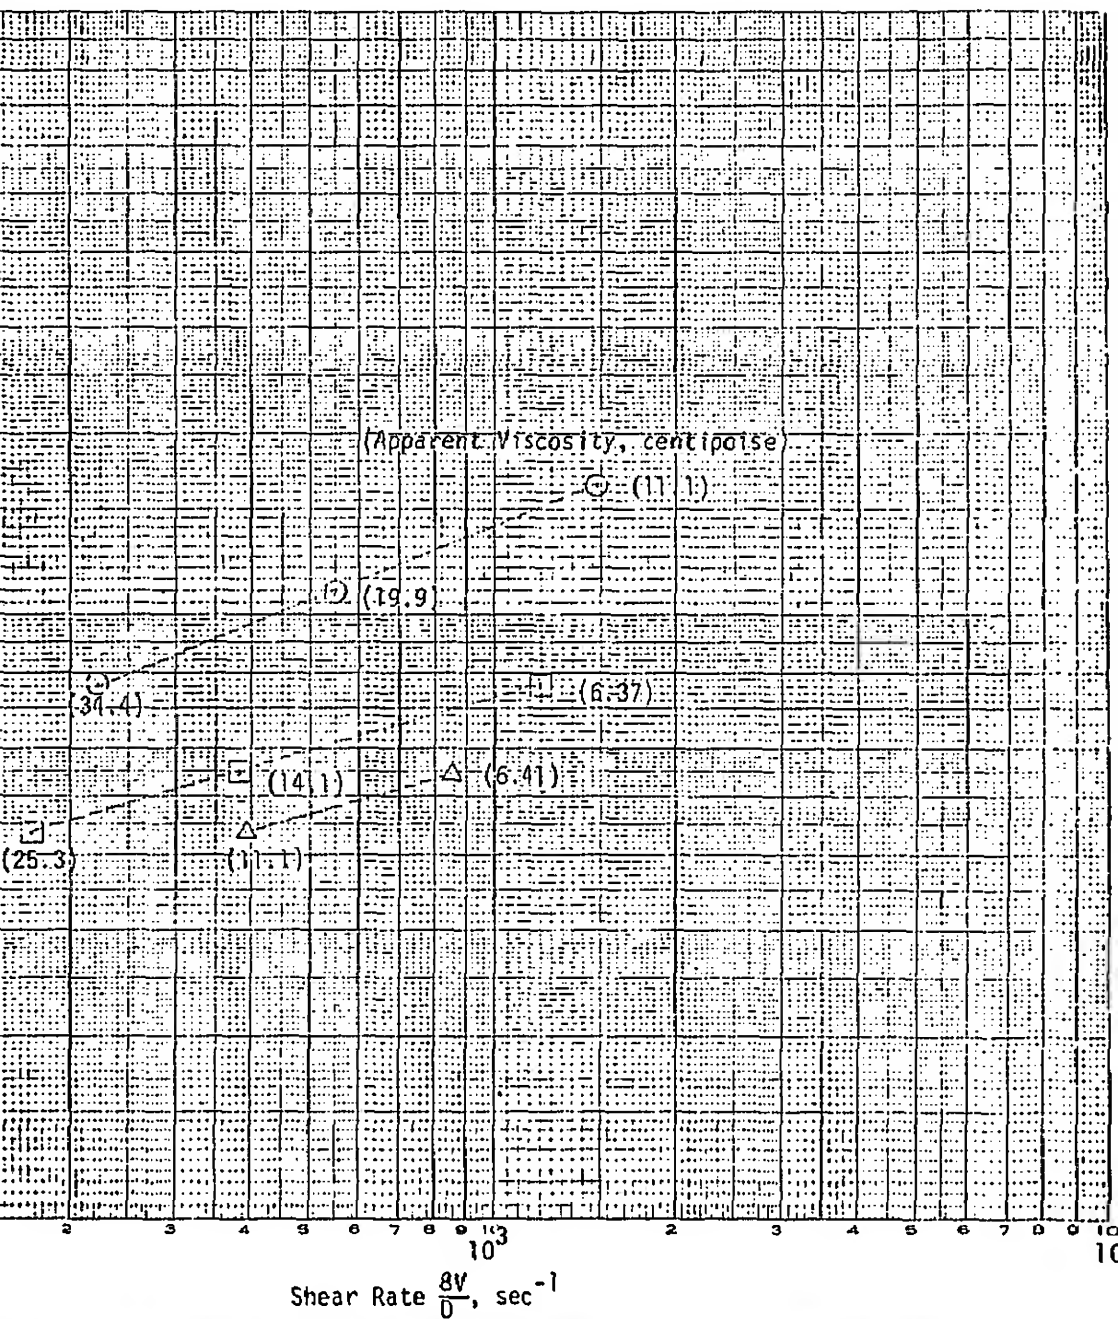 (Apparent Viscosity, centipoise)
(11.1)
(19.9)
(31.4)
(6.37)
(14.1)
(6.41)
(25.3)
(11.1)
2 3 4 5 6 7 8 9 10 2 3 4 5 6 7 8 9 10
10³ 10
Shear Rate 8V/D, sec⁻¹